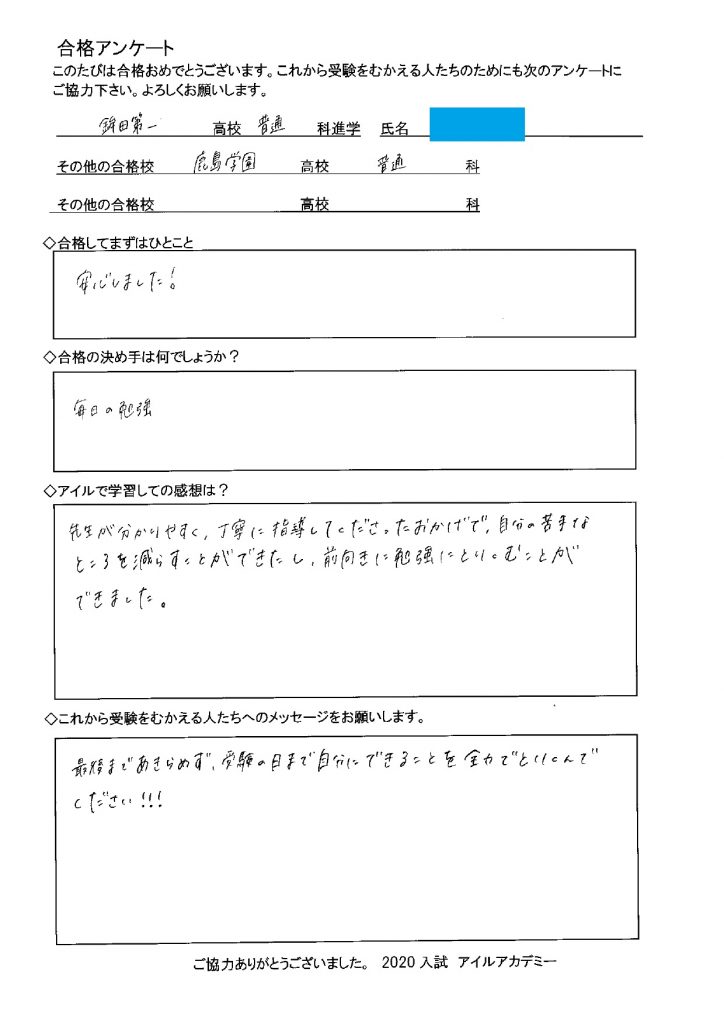 合格アンケート
このたびは合格おめでとうございます。これから受験をむかえる人たちのためにも次のアンケートに
ご協力下さい。よろしくお願いします。
鉾田第一 高校 普通 科進学 氏名
その他の合格校 鹿島学園 高校 普通 科
その他の合格校 高校 科
◇合格してまずはひとこと
安心しました!
◇合格の決め手は何でしょうか？
毎日の勉強
◇アイルで学習しての感想は？
先生が分かりやすく、丁寧に指導してくださったおかげで、自分の苦手な
ところを減らすことができたし、前向きに勉強にとりくむことが
できました。
◇これから受験をむかえる人たちへのメッセージをお願いします。
最後まであきらめず、受験の日まで自分にできることを全力でとりくんで
ください!!!
ご協力ありがとうございました。 2020 入試 アイルアカデミー